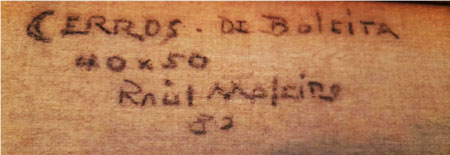 CERROS. DE BOLEITA
40x50
Raúl Moleiro
82